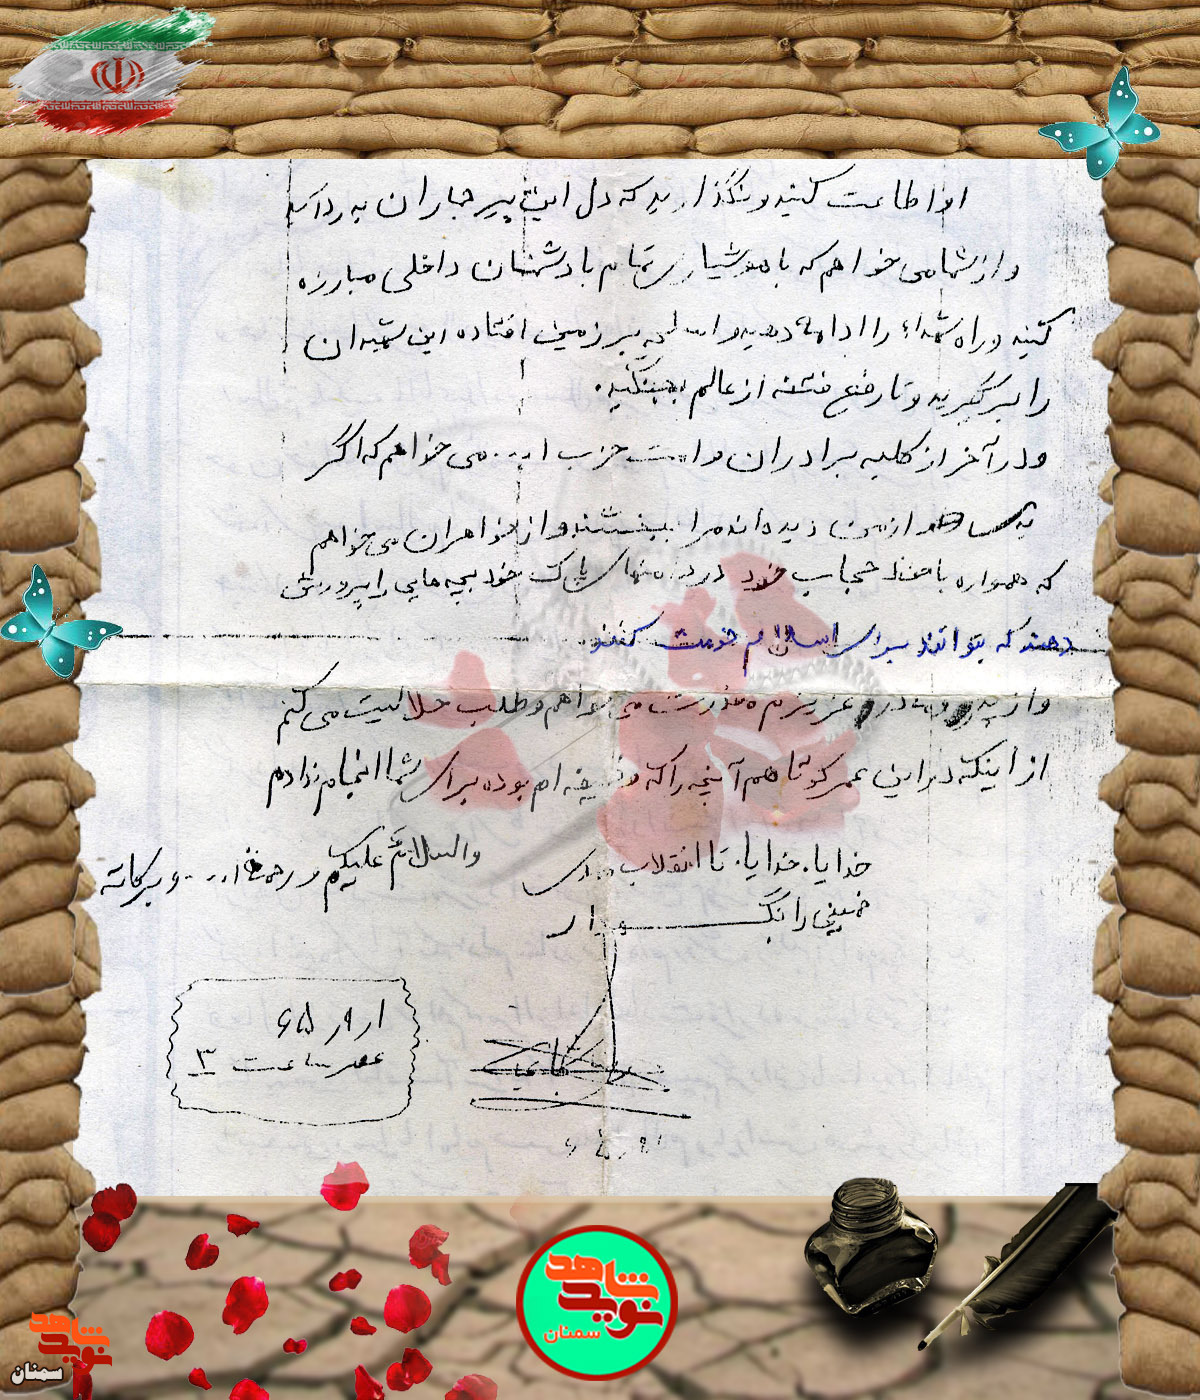 او اطاعت کنید و نگذارید که دل این پیر جماران به درد آید
و از شما می خواهم که با هوشیاری تمام با دشمنان داخلی مبارزه
کنید و راه شهداء را ادامه دهید و اسلحه بر زمین افتاده این شهیدان
را بر گیرید و تا رفع فتنه از عالم بجنگید.
و در آخر از کلیه برادران و امت حزب ا... می خواهم که اگر
از من دیده اند مرا ببخشند و از خواهران می خواهم
که همواره با حفظ حجاب خود در دامنهای پاک خود بچه هایی را پرورش
دهند که بتوانند برای اسلام خدمت کنند
و از پدر و مادر عزیزم معذرت می خواهم و طلب حلالیت می کنم
از اینکه در این عمر کوتاهم آنچه را که وظیفه ام بوده برای شما انجام ندادم
خدایا. خدایا. تا انقلاب مهدی
خمینی را نگهدار
والسلام علیکم و رحمة ا... و برکاته
۶۵/۹/۱
عصر ساعت ۳
شاهد
نوید
سمنان
شاهد
نوید
سمنان